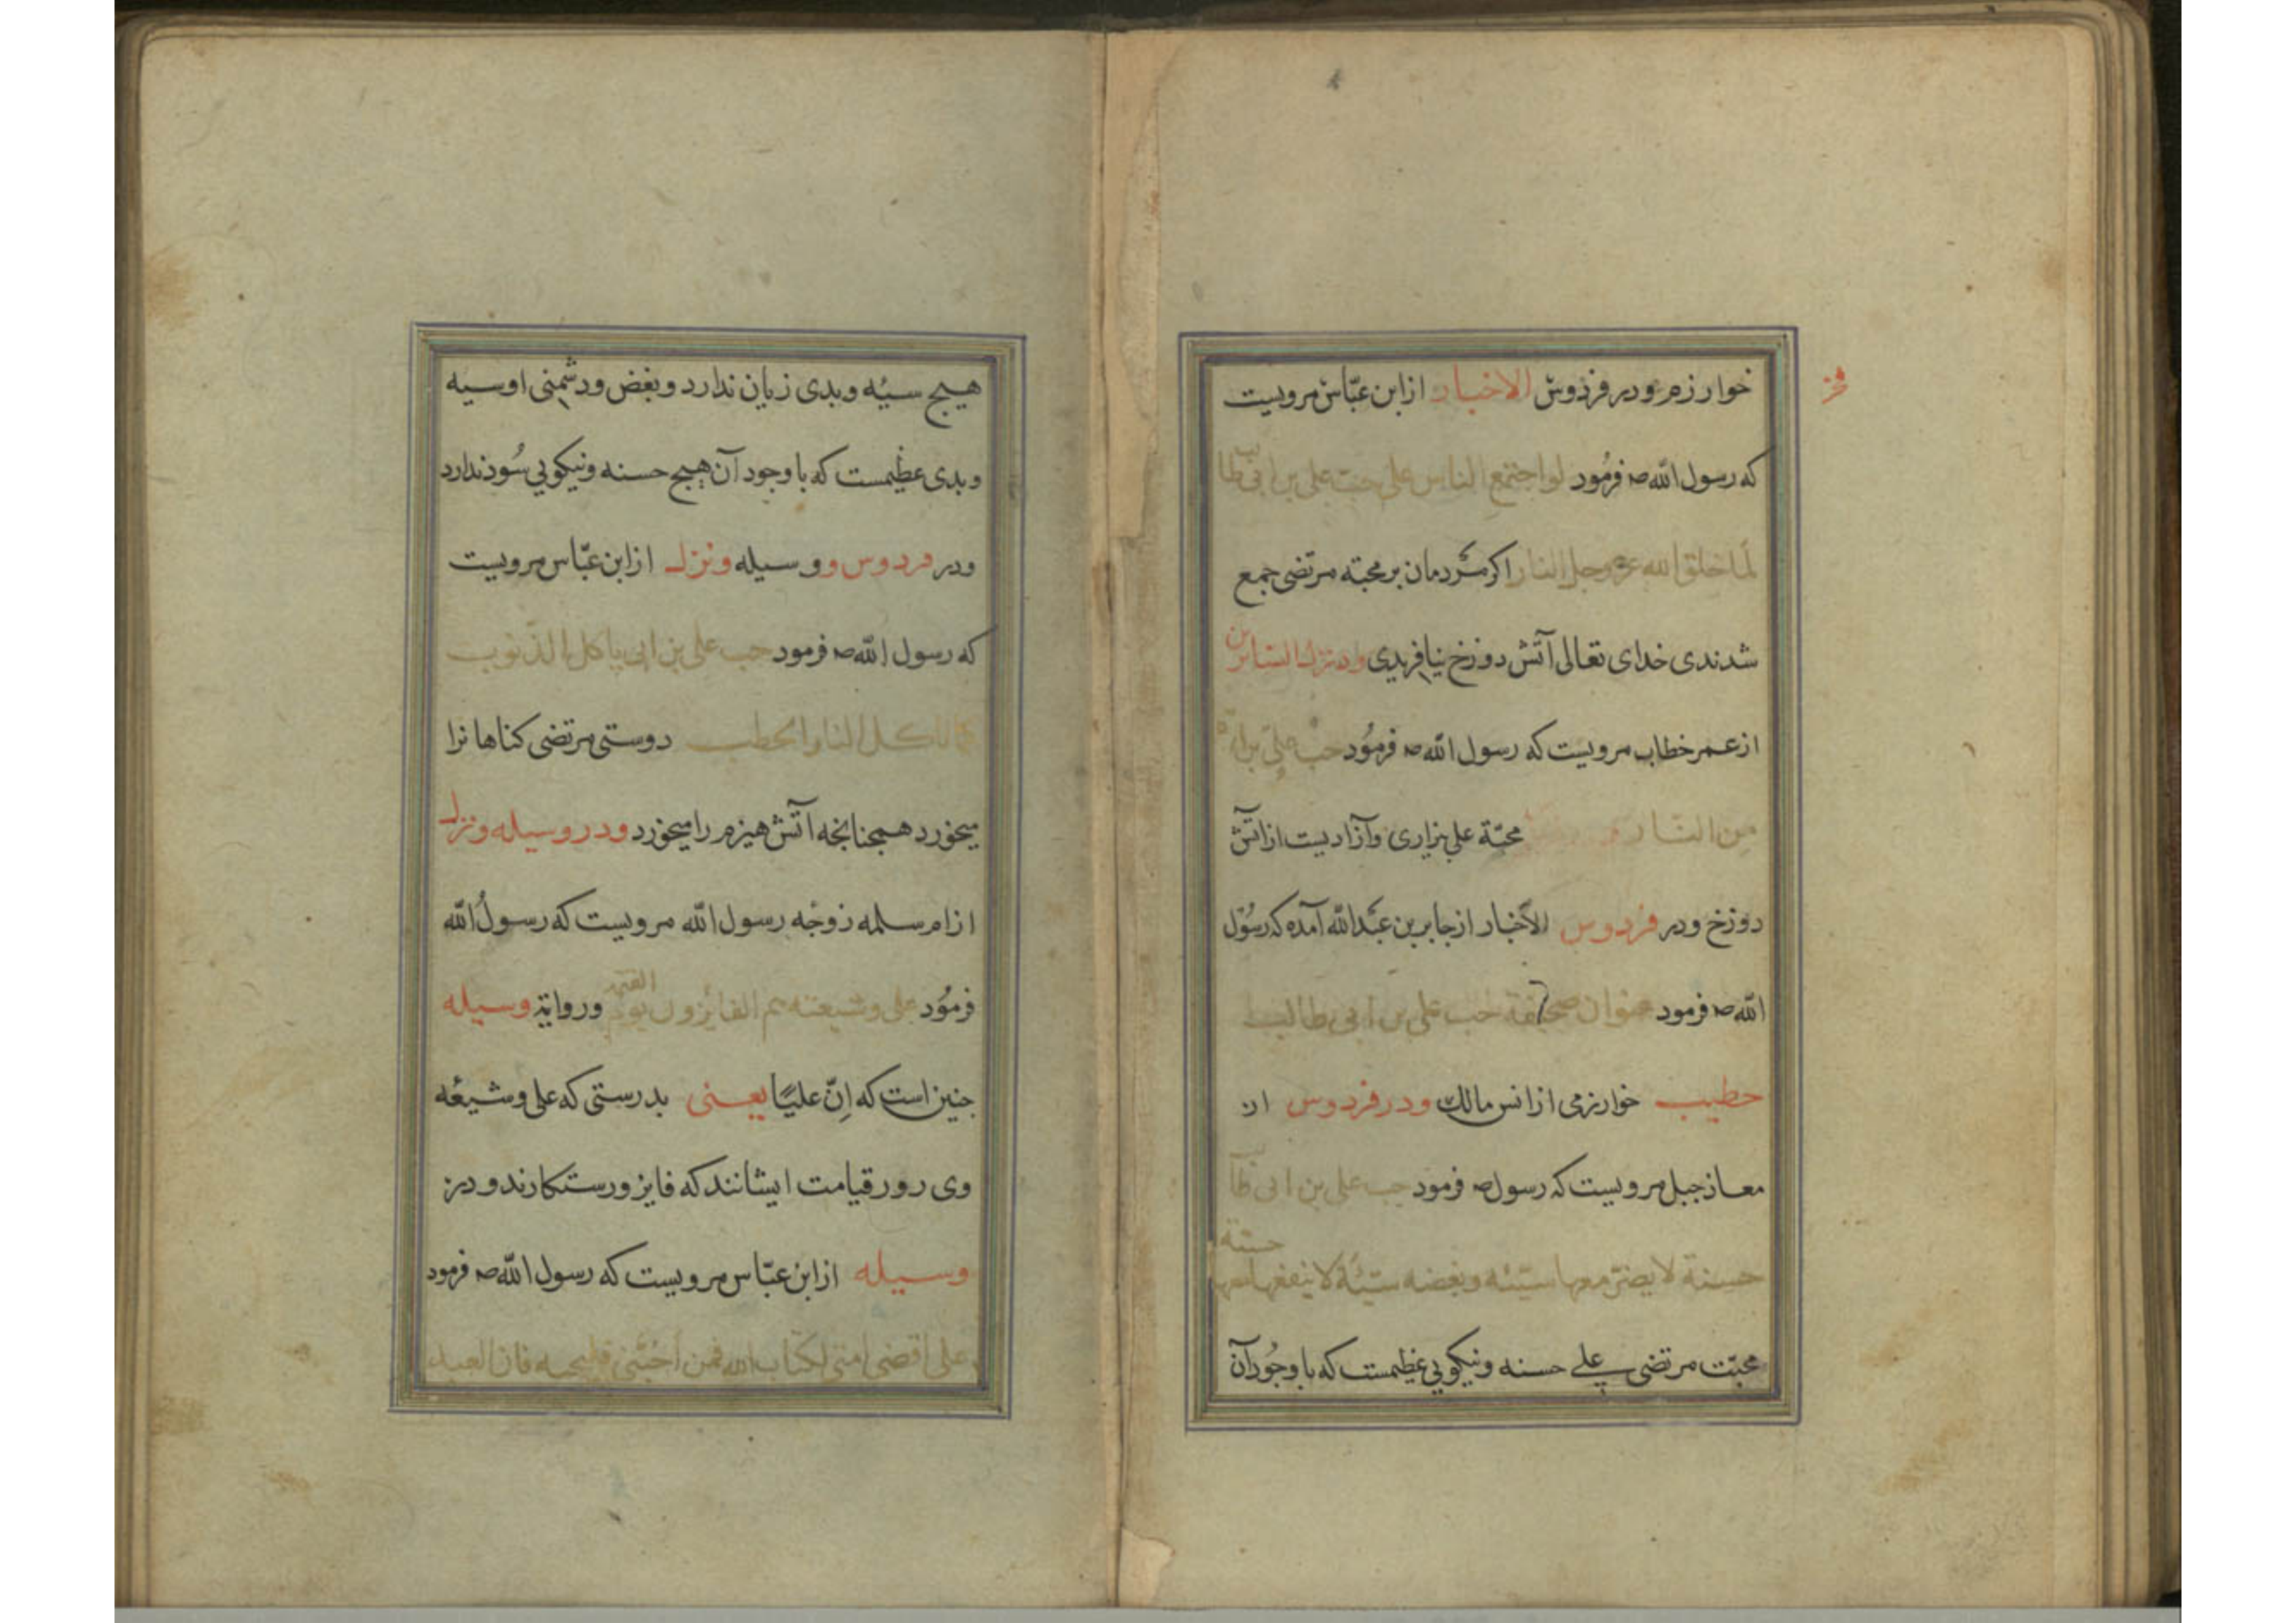 خوارزم ودر فردوس الاخبار از ابن عبّاس مرویست
که رسول اللّه صـ فرمُود لو اجتمع الناس علی حبّ علی بن ابی طالب
لَما خلق الله عزّ وجلّ النار اکر مَردمان بر محبته مرتضی جمع
شدندی خدای تعالی آتش دوزخ نیافریدی ودر نزل السائرین
از عمر خطاب مرویست که رسول اللّه صـ فرموُد حبّ علیّ براة
مِن النّار محبّة علی بزاری وآزادیست از اتش
دوزخ ودر فردوس الاَخبار از جابر بن عبدالله آمده که رسُول
اللّه صـ فرمود عنوان صحیفة حب علی بن ابی طالب
خطیب خوارزمی از انس مالک ودر فردوس از
معاذ جبل مرویست که رسول صـ فرمود حب علی بن ابی طالب
حسنة لا یضرّ معها سیّئه وبغضه سیّئة لا ینفع معها حسنة
محبّت مرتضی علی حسنه ونیکویی عظیمست که با وجُود آن
هیج سیئه وبدی زیان ندارد وبغض ودشمنی او سیه
وبدی عظیمست که با وجود آن هیج حسنه ونیکویی سُود ندارد
ودر فردوس و وسیله ونزل از ابن عبّاس مرویست
که رسول اللّه صـ فرمود حب علی بن ابی یاکل الذّنوب
کما تاکل النار الحطب دوستی مرتضی کناهانرا
میخورد همجنانجه آتش هیزم را میخورد ودر وسیله ونزل
از ام سلمه زوجه رسول اللّه مرویست که رسولُ اللّه
فرموُد علی وشیعته هم الفائزون یوم القیمة وروایة وسیله
جنین است که اِنّ علیًا یعنی بدرستی که علی وشیعُه
وی رور قیامت ایشانند که فایز ورستکارند ودر
وسیله از ابن عبّاس مرویست که رسول اللّه صـ فرمود
علی اقضی امتی بکتاب الله فمن أحبّنی فلیحبه فان العبد